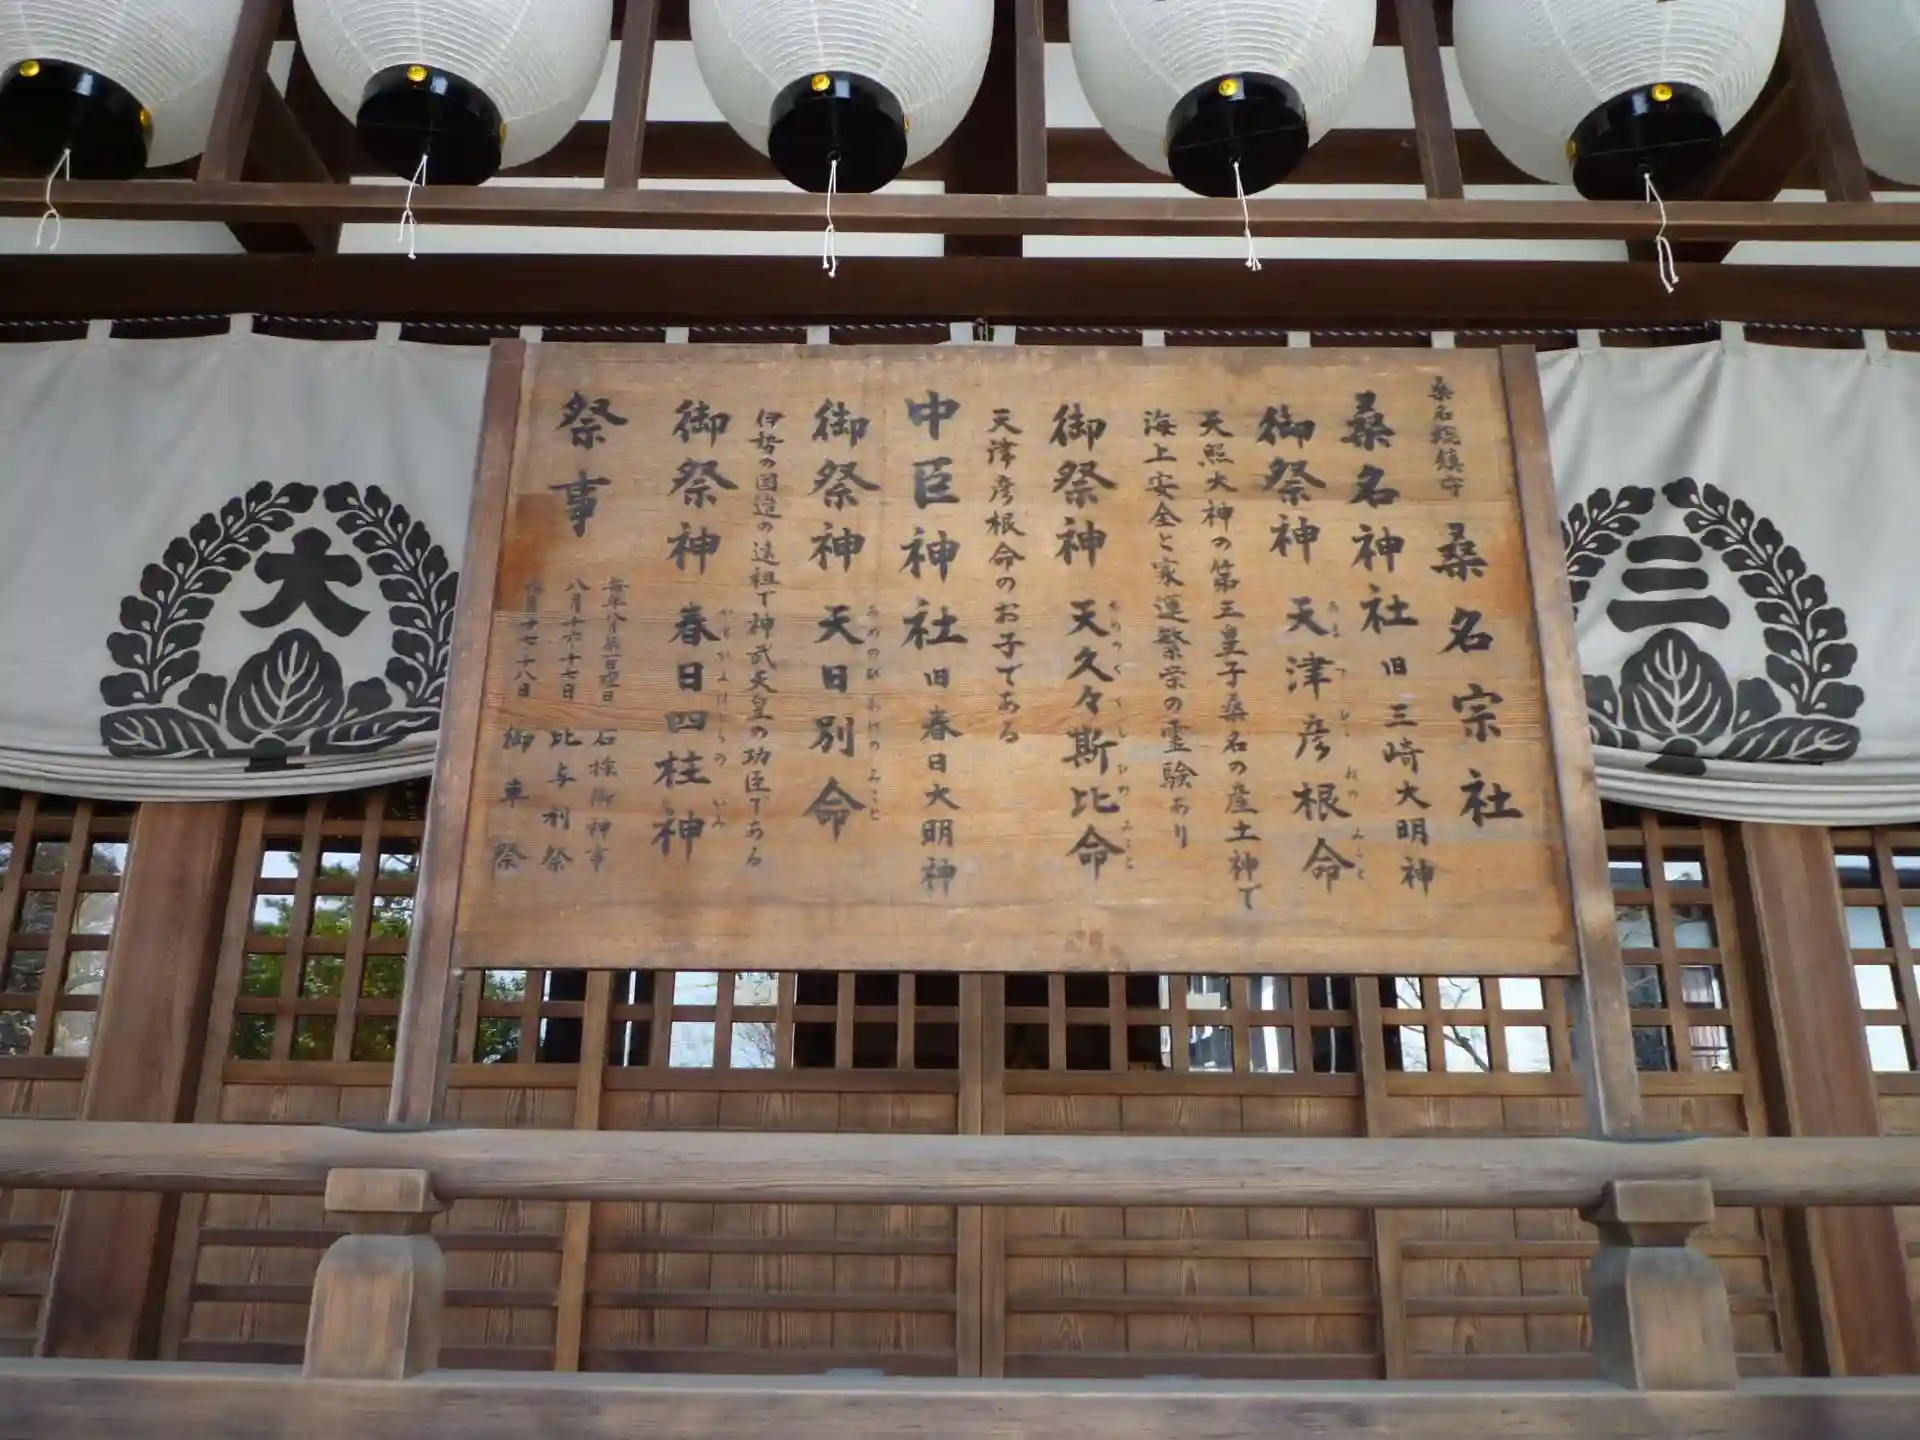 桑名総鎮守 桑名宗社
桑名神社 旧三崎大明神
御祭神 天津彦根命
あまつひこねのみこと
天照大神の第三皇子桑名の産土神で
海上安全と家運繁栄の霊験あり
御祭神 天久々斯比命
あめのくぐしびのみこと
天津彦根命のお子である
中臣神社 旧春日大明神
御祭神 天日別命
あめのひわけのみこと
伊勢の国造の遠祖で神武天皇の功臣である
御祭神 春日四柱神
祭事
毎年八月第一日曜日 石採御神事
八月十六十七日 比与利祭
十七十八日 御車祭
大
三